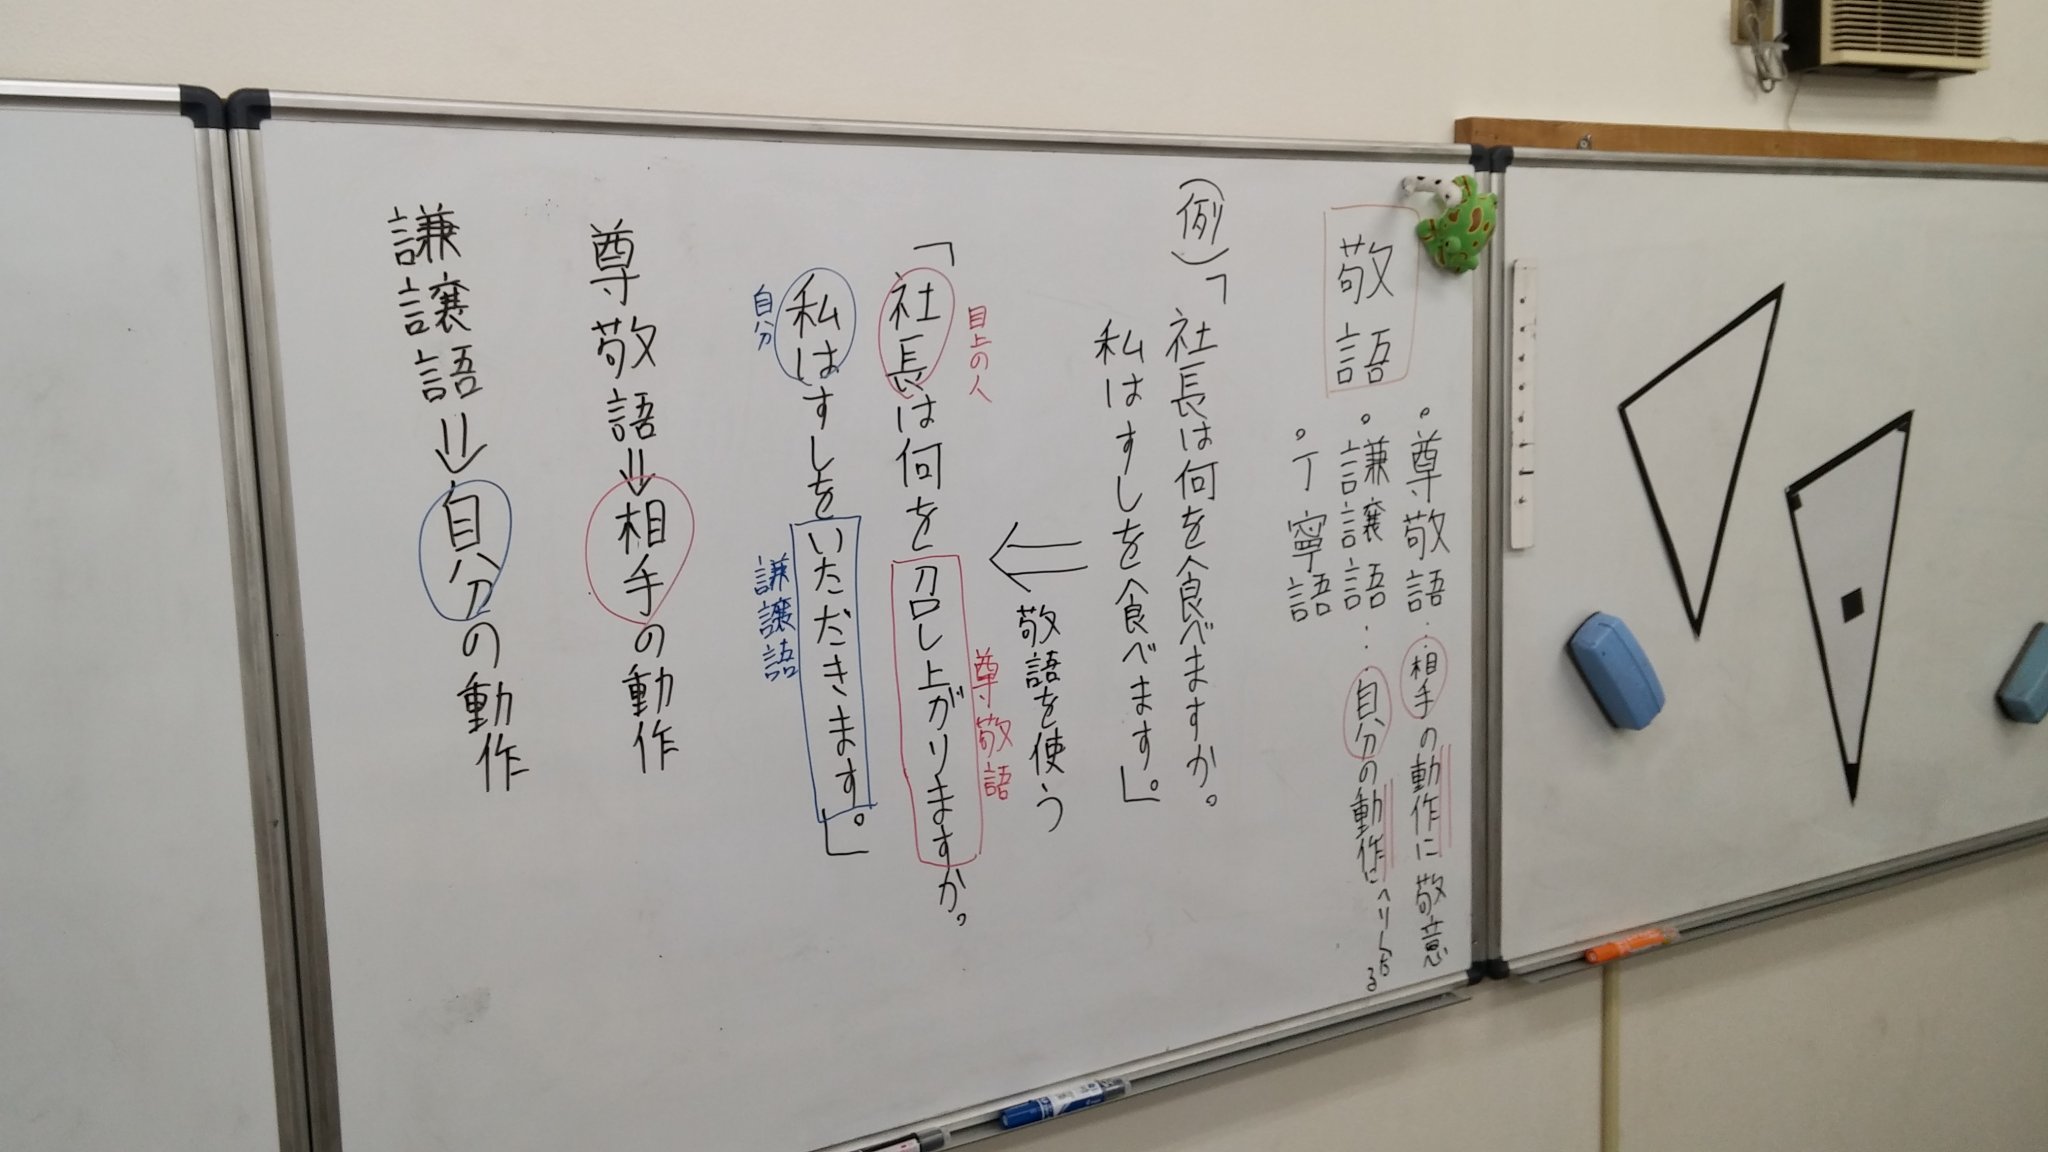 敬語
・尊敬語…相手の動作に敬意
・謙譲語…自分の動作にへりくだる
・丁寧語
(例)「社長は何を食べますか。
私はすしを食べます。」
敬語を使う
目上の人
尊敬語
「社長は何を召し上がりますか。
私はすしをいただきます。」
自分
謙譲語
尊敬語⇒相手の動作
謙譲語⇒自分の動作